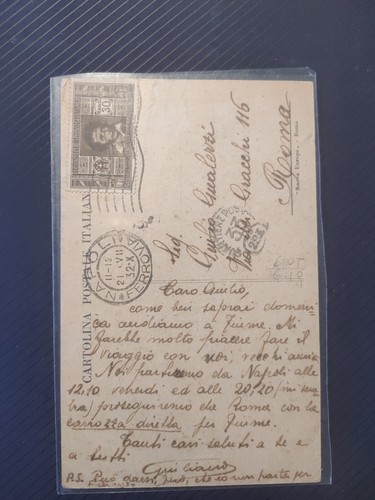 CARTOLINA POSTALE ITALIANA
30
NAPOLI
FERROVIA
11-12
21·VII
32·X
Sig.
Giulio Gualerzi
Gracchi 116
Roma
Caro Giulio,
come ben saprai domeni-
ca andiamo a Fiume. Mi
sarebbe molto piacere fare il
viaggio con voi, vecchi amici
Noi partiremo da Napoli alle
12,10 venerdì ed alle 20,20 (mi sem-
bra) proseguiremo da Roma con la
carrozza diretta per Fiume.
Tanti cari saluti a te e
a tutti
Giuliano
P.S. Può darsi, però, che io non parta per